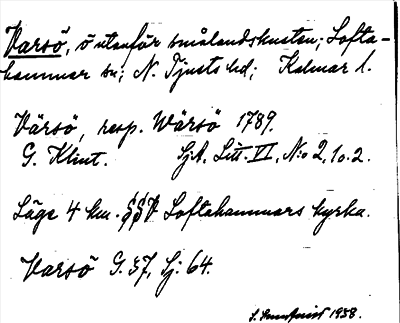 Varsö, ö utanför smålandskusten; Lofta-
hammar sn; N. Tjusts hd; Kalmar l.
Värsö, resp. Wärsö 1789.
G. Klint. SjA, Litt. VI, N:o 2, 1o. 2.
Läge 4 km. SSV Loftahammars kyrka.
Varsö G. 37, Sj: 64.
S. 1938.